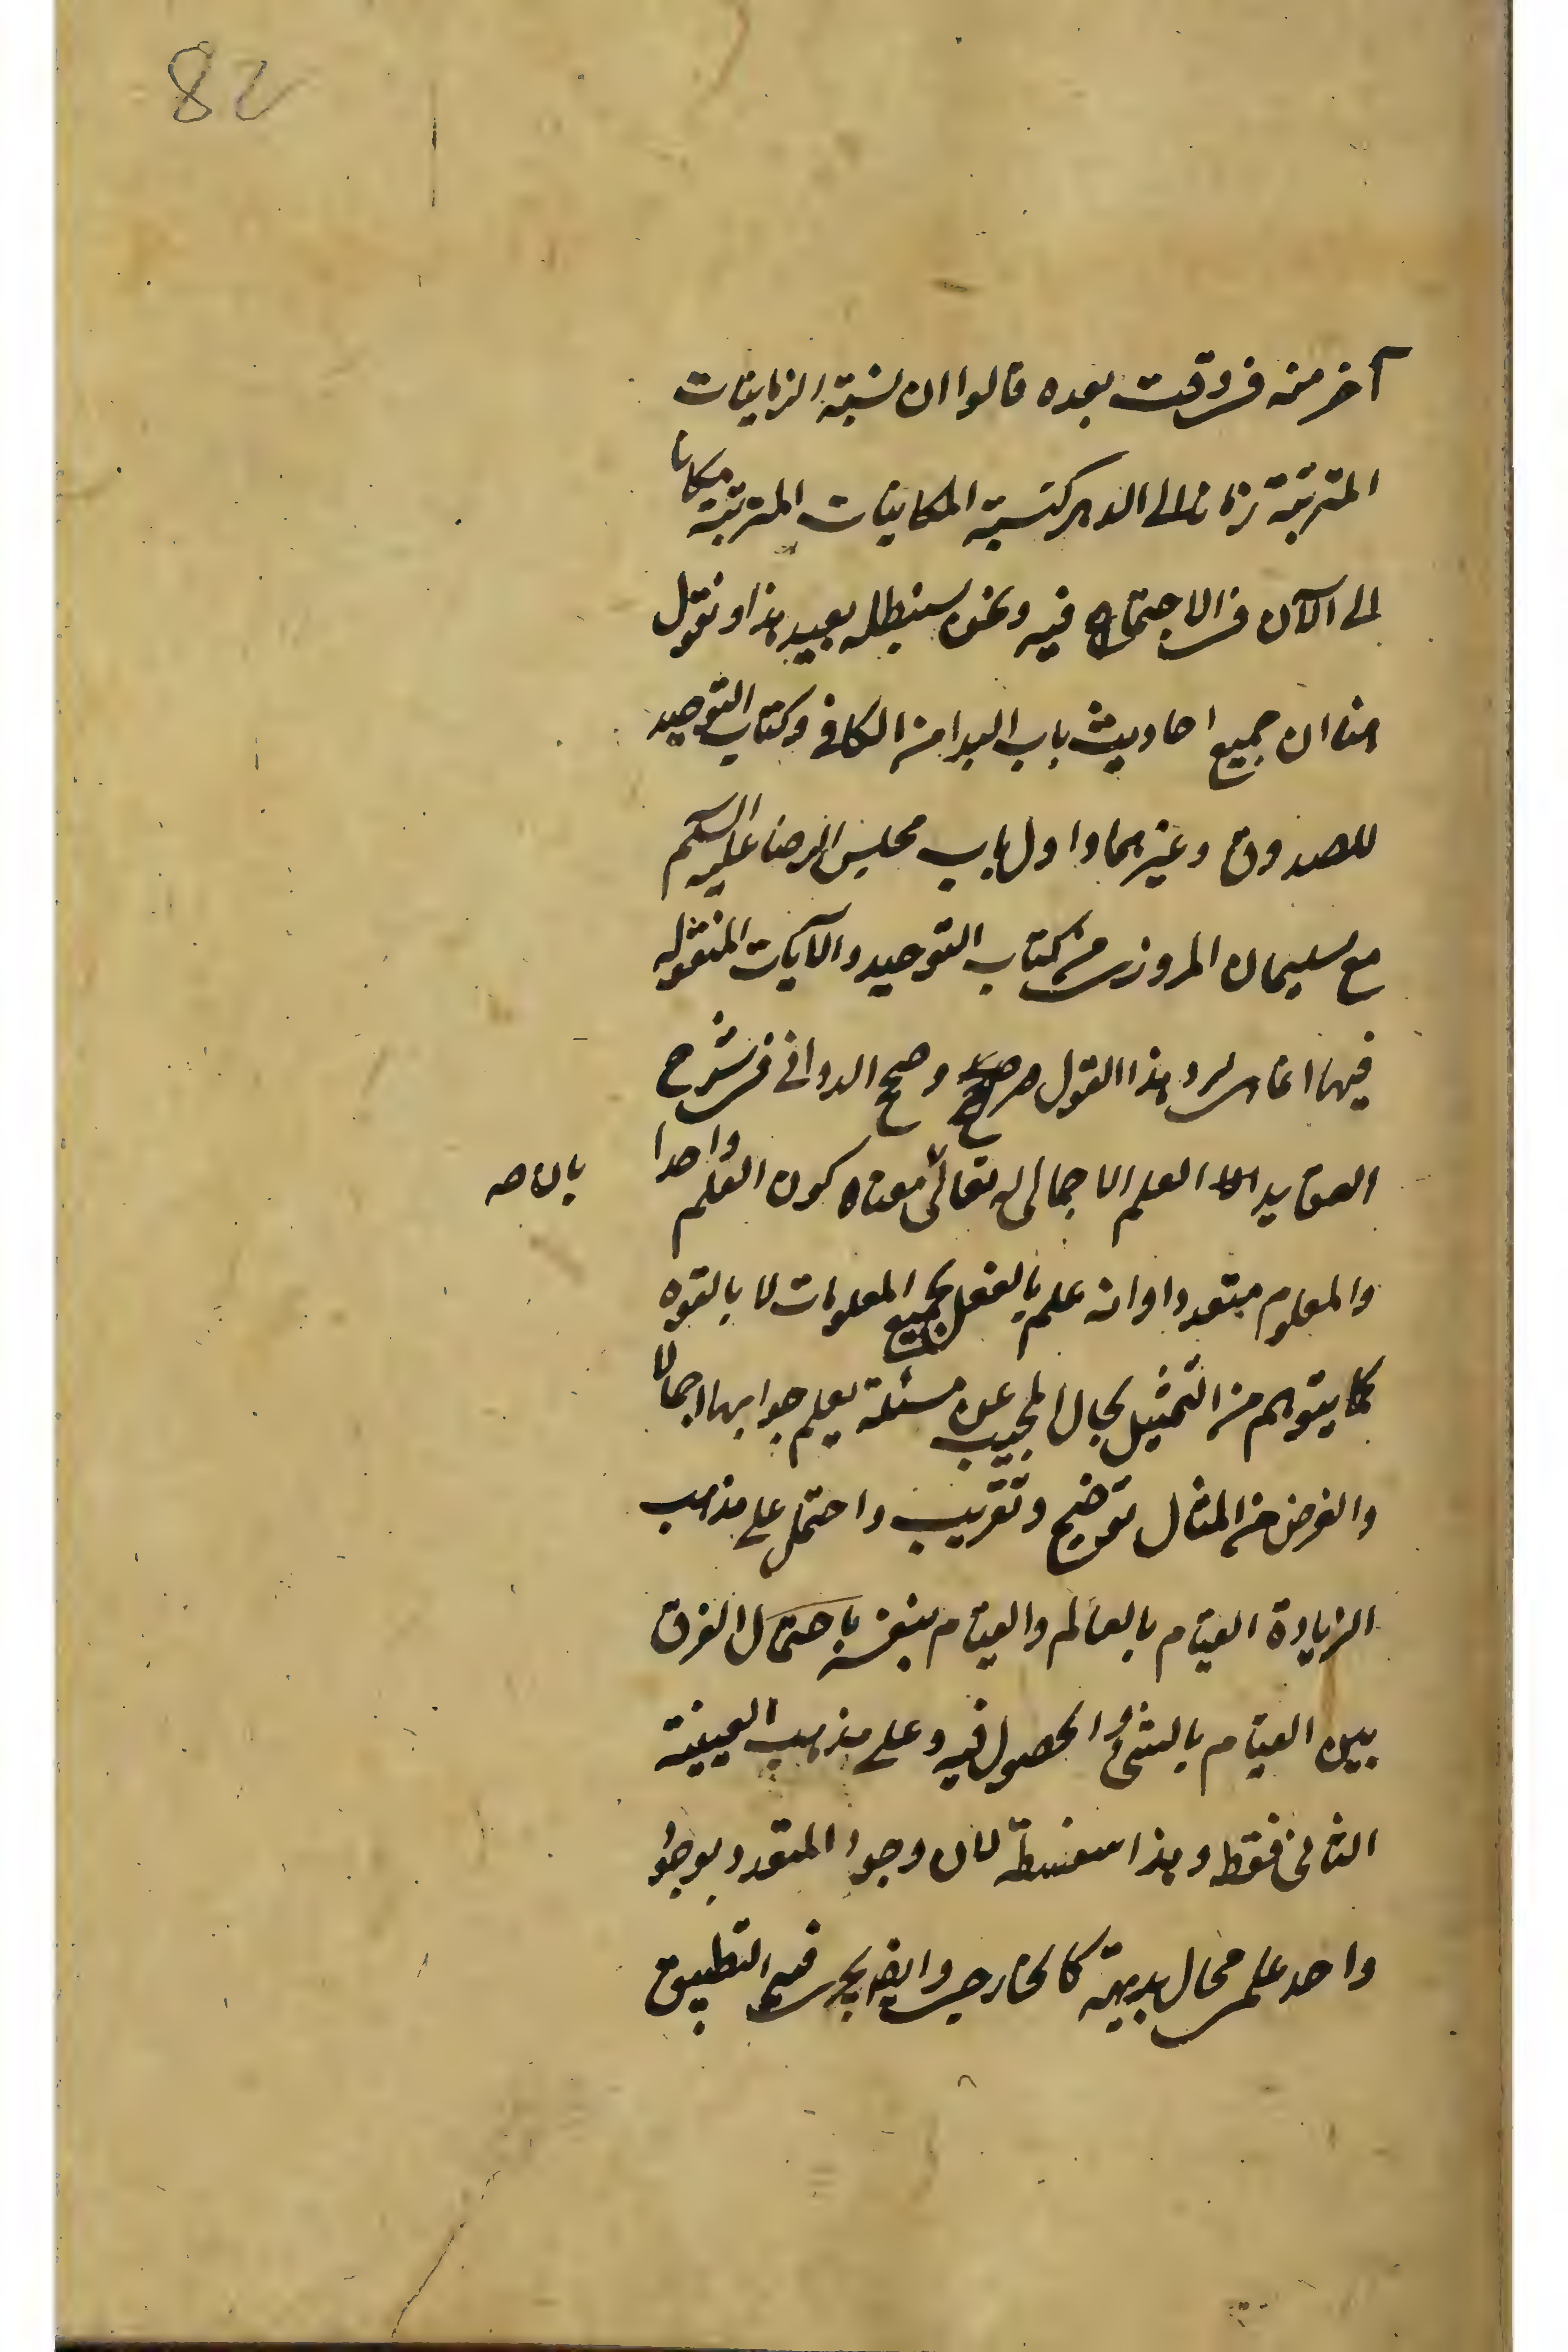 82
آخر منه في وقت بعده قالوا ان نسبة الزمانيات
المترتبة زمانا الى الدهر كنسبة المكانيات المترتبة مكانا
الى الآن في الاجتماع فيه ونحن سنبطله بعيد هذا ونقول
هنا ان جميع احاديث باب البدا من الكافي وكتاب التوحيد
للصدوق وغيرهما واول باب مجلس الرضا عليه السلم
مع سليمان المروزي من كتاب التوحيد والآيات المنقوله
فيها انما هي لرد هذا القول صريح وصحح الدواني في شرح
العقايد العلم الاجمالي له تعالى معناه كون العلم واحدا
بان صه
والمعلوم متعددا وانه علم بالفعل بجميع المعلومات لا بالقوه
كما يتوهم من التمثيل بحال المجيب عن مسئلة يعلم جوابها اجمالا
والغرض من المثال توضيح وتقريب واحتمل على مذهب
الزيادة القيام بالعالم والقيام بنفسه باحتمال الفرق
بين القيام بالشئ والحصول فيه وعلى مذهب العينية
الثاني فقط وهذا سفسطة لان وجود المتعدد بوجود
واحد علمي محال بديهة كالخارجي وايضا يجري فيه التطبيق